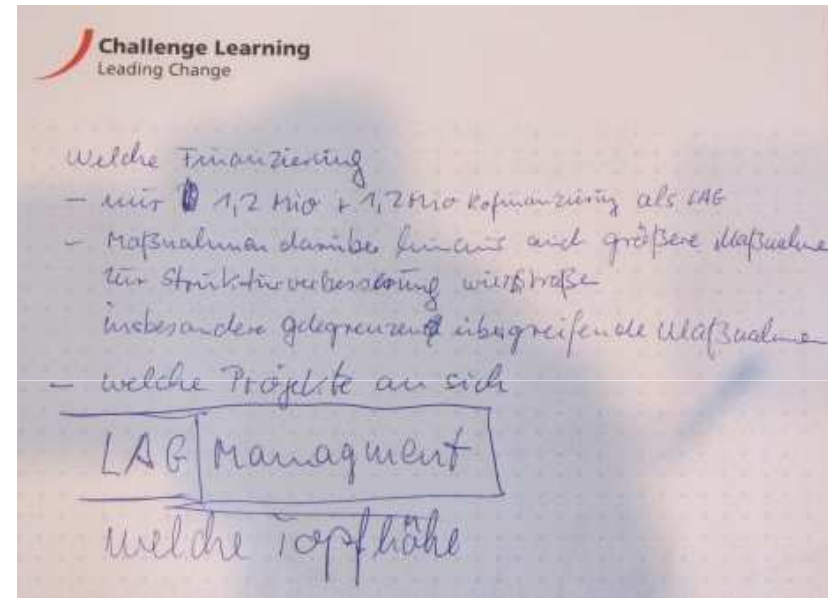 Challenge Learning
Leading Change
Welche Finanzierung
– nur 1,2 Mio + 1,2 Mio Kofinanzierung als LAG
– Maßnahmen darüber hinaus auch größere Maßnahme
zur Strukturverbesserung wie Straße
insbesondere übergreifende Maßnahmen
– welche Projekte an sich
LAG Managment
welche Topfhöhe